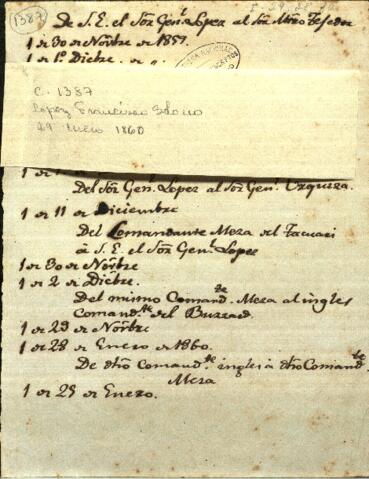 1387
De S. E. el Sor Genl. Lopez al Sor Mtro Tejedor
1 de 30 de Novbre de 1859.
1 de 1o. Dicbre. de ".
C. 1387
Lopez Francisco Solano
29 Enero 1860
Del Sor Genl. Lopez al Sor Genl. Urquiza.
1 de 11 de Diciembre
Del Comandante Meza del Tacuari
a S. E. el Sor Genl. Lopez
1 de 30 de Novbre
1 de 2 de Dicbre.
Del mismo Comandte. Meza al ingles
Comandte. del Buzzard
1 de 29 de Novbre
1 de 28 de Enero de 1860.
De dho Comandte. ingles a dho Comandte
Meza
1 de 29 de Enero.